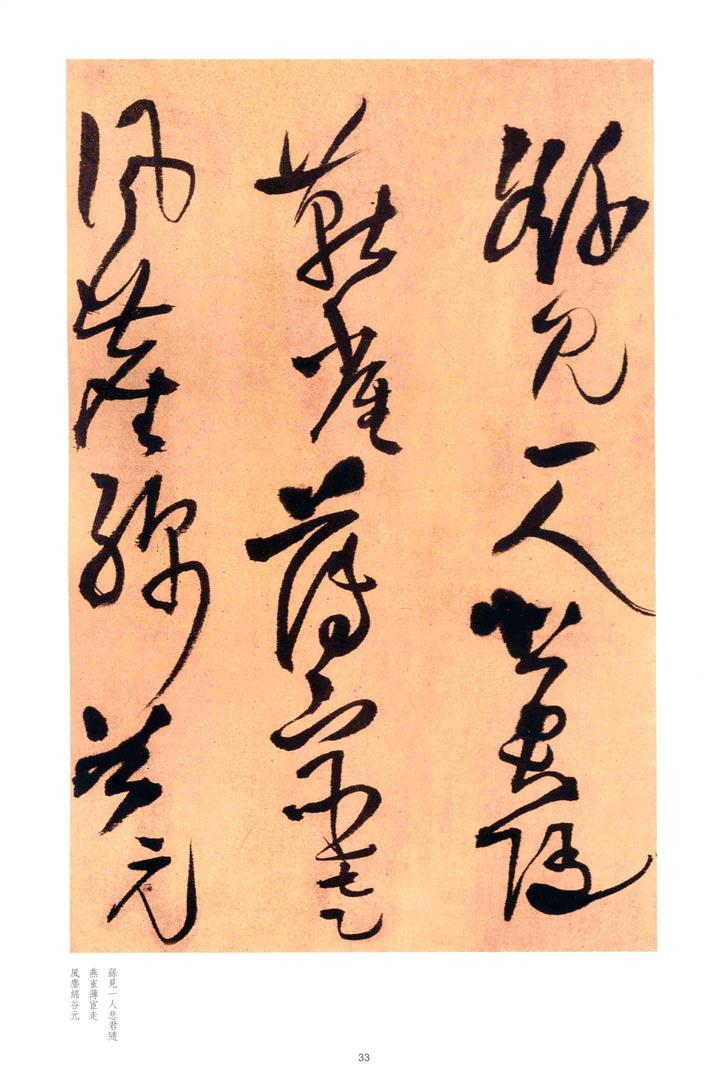 繇見一人悲君隨
燕雀薄宦走
風塵綿谷元
繇見一人悲君隨
燕雀薄宦走
風塵綿谷元
33